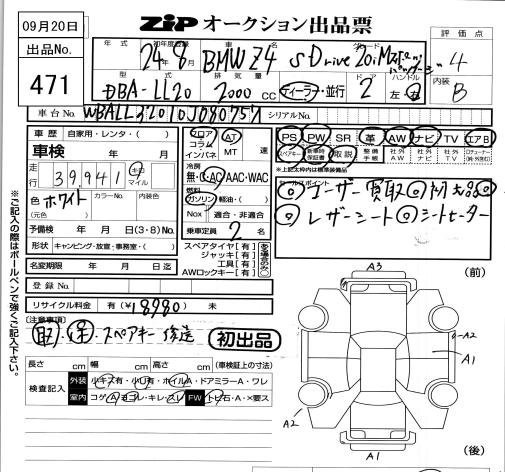 09月20日
ZIP オークション出品票
出品No.
471
年式 初年度登録 車名 グレード
24年 8月 BMW Z4 sDrive20i Mスポーツパッケージ
型式 排気量 ドア ハンドル
DBA-LL20 2000 cc ディーラー・並行 2 左・右
評価点
4
内装
B
車台No. WBALL32010J080757 シリアルNo.
車歴 自家用・レンタ・( )
車検 年 月
走行 39,941 キロ マイル
色 ホワイト カラーNo. 内装色
(元色)
予備検 年 月 日(3・8)No.
形状 キャンピング・放宣・事務室・( )
名変期限 年 月 日迄
登録No.
リサイクル料金 有(¥18980) 未
フロア コラム インパネ AT MT 速
冷房
無・C・AC・AAC・WAC
燃料
ガソリン・軽油・( )
Nox 適合・非適合
乗車定員 2 名
スペアタイヤ【有】
ジャッキ【有】
工具【有】
AWロックキー【有】
PS PW SR 革 AW ナビ TV エアB
スペアキー 新車時保証書 取説 整備手帳 社外AW 社外ナビ 社外TV
※上記太枠内は標準装備
セールスポイント
◎ユーザー買取◎内外大品◎
◎レザーシート◎シートヒーター
【注意事項】
取・保・スペアキー後送
初出品
長さ cm 幅 cm 高さ cm (車検証上の寸法)
検査記入 外装 小キズ有・小凹有・ホイルA・ドアミラーA・ワレ
室内 コゲA・ヨゴレ・キレ・スレ FW トビ石・A・×要ス
※ご記入の際はボールペンで強くご記入下さい。
A3
(前)
A2
A1
A2
A1
(後)